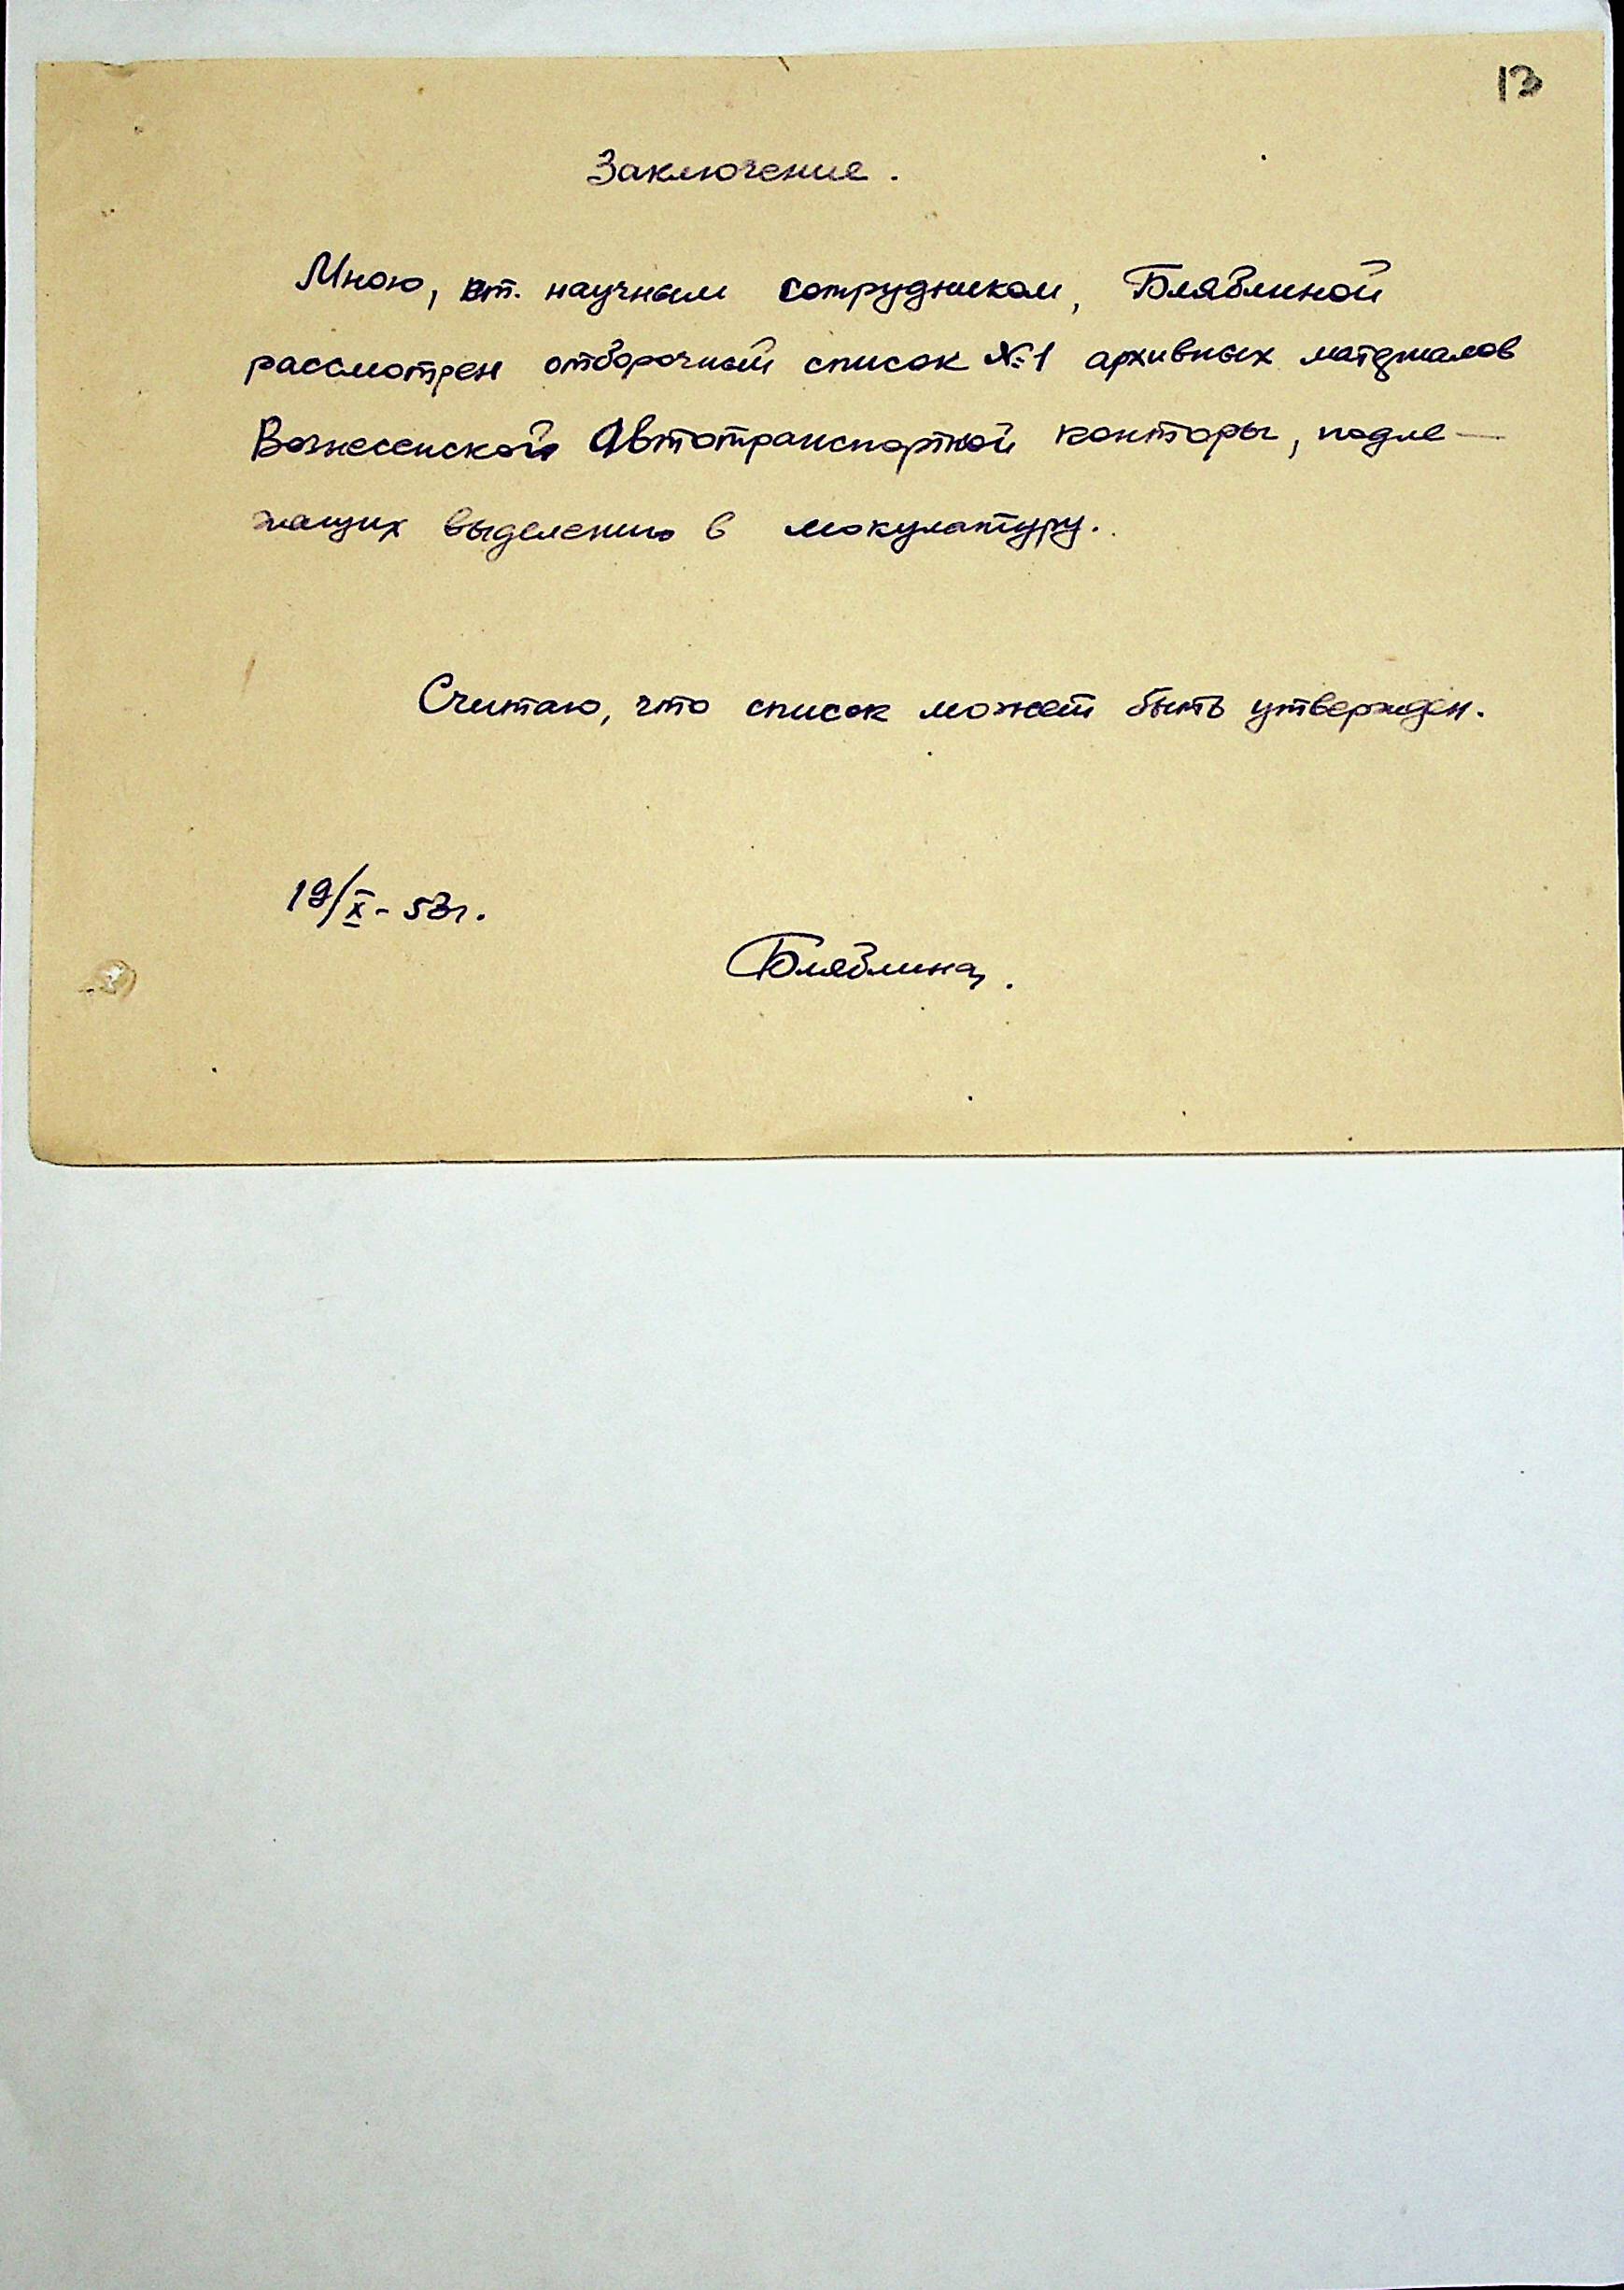 13
Заключение.
Мною, ст. научным сотрудником, Бляблиной
рассмотрен отборочный список №1 архивных материалов
Вознесенской Автотранспортной конторы, подле-
жащих выделению в мокулатуру.
Считаю, что список может быть утвержден.
19/X - 53г.
Бляблина.